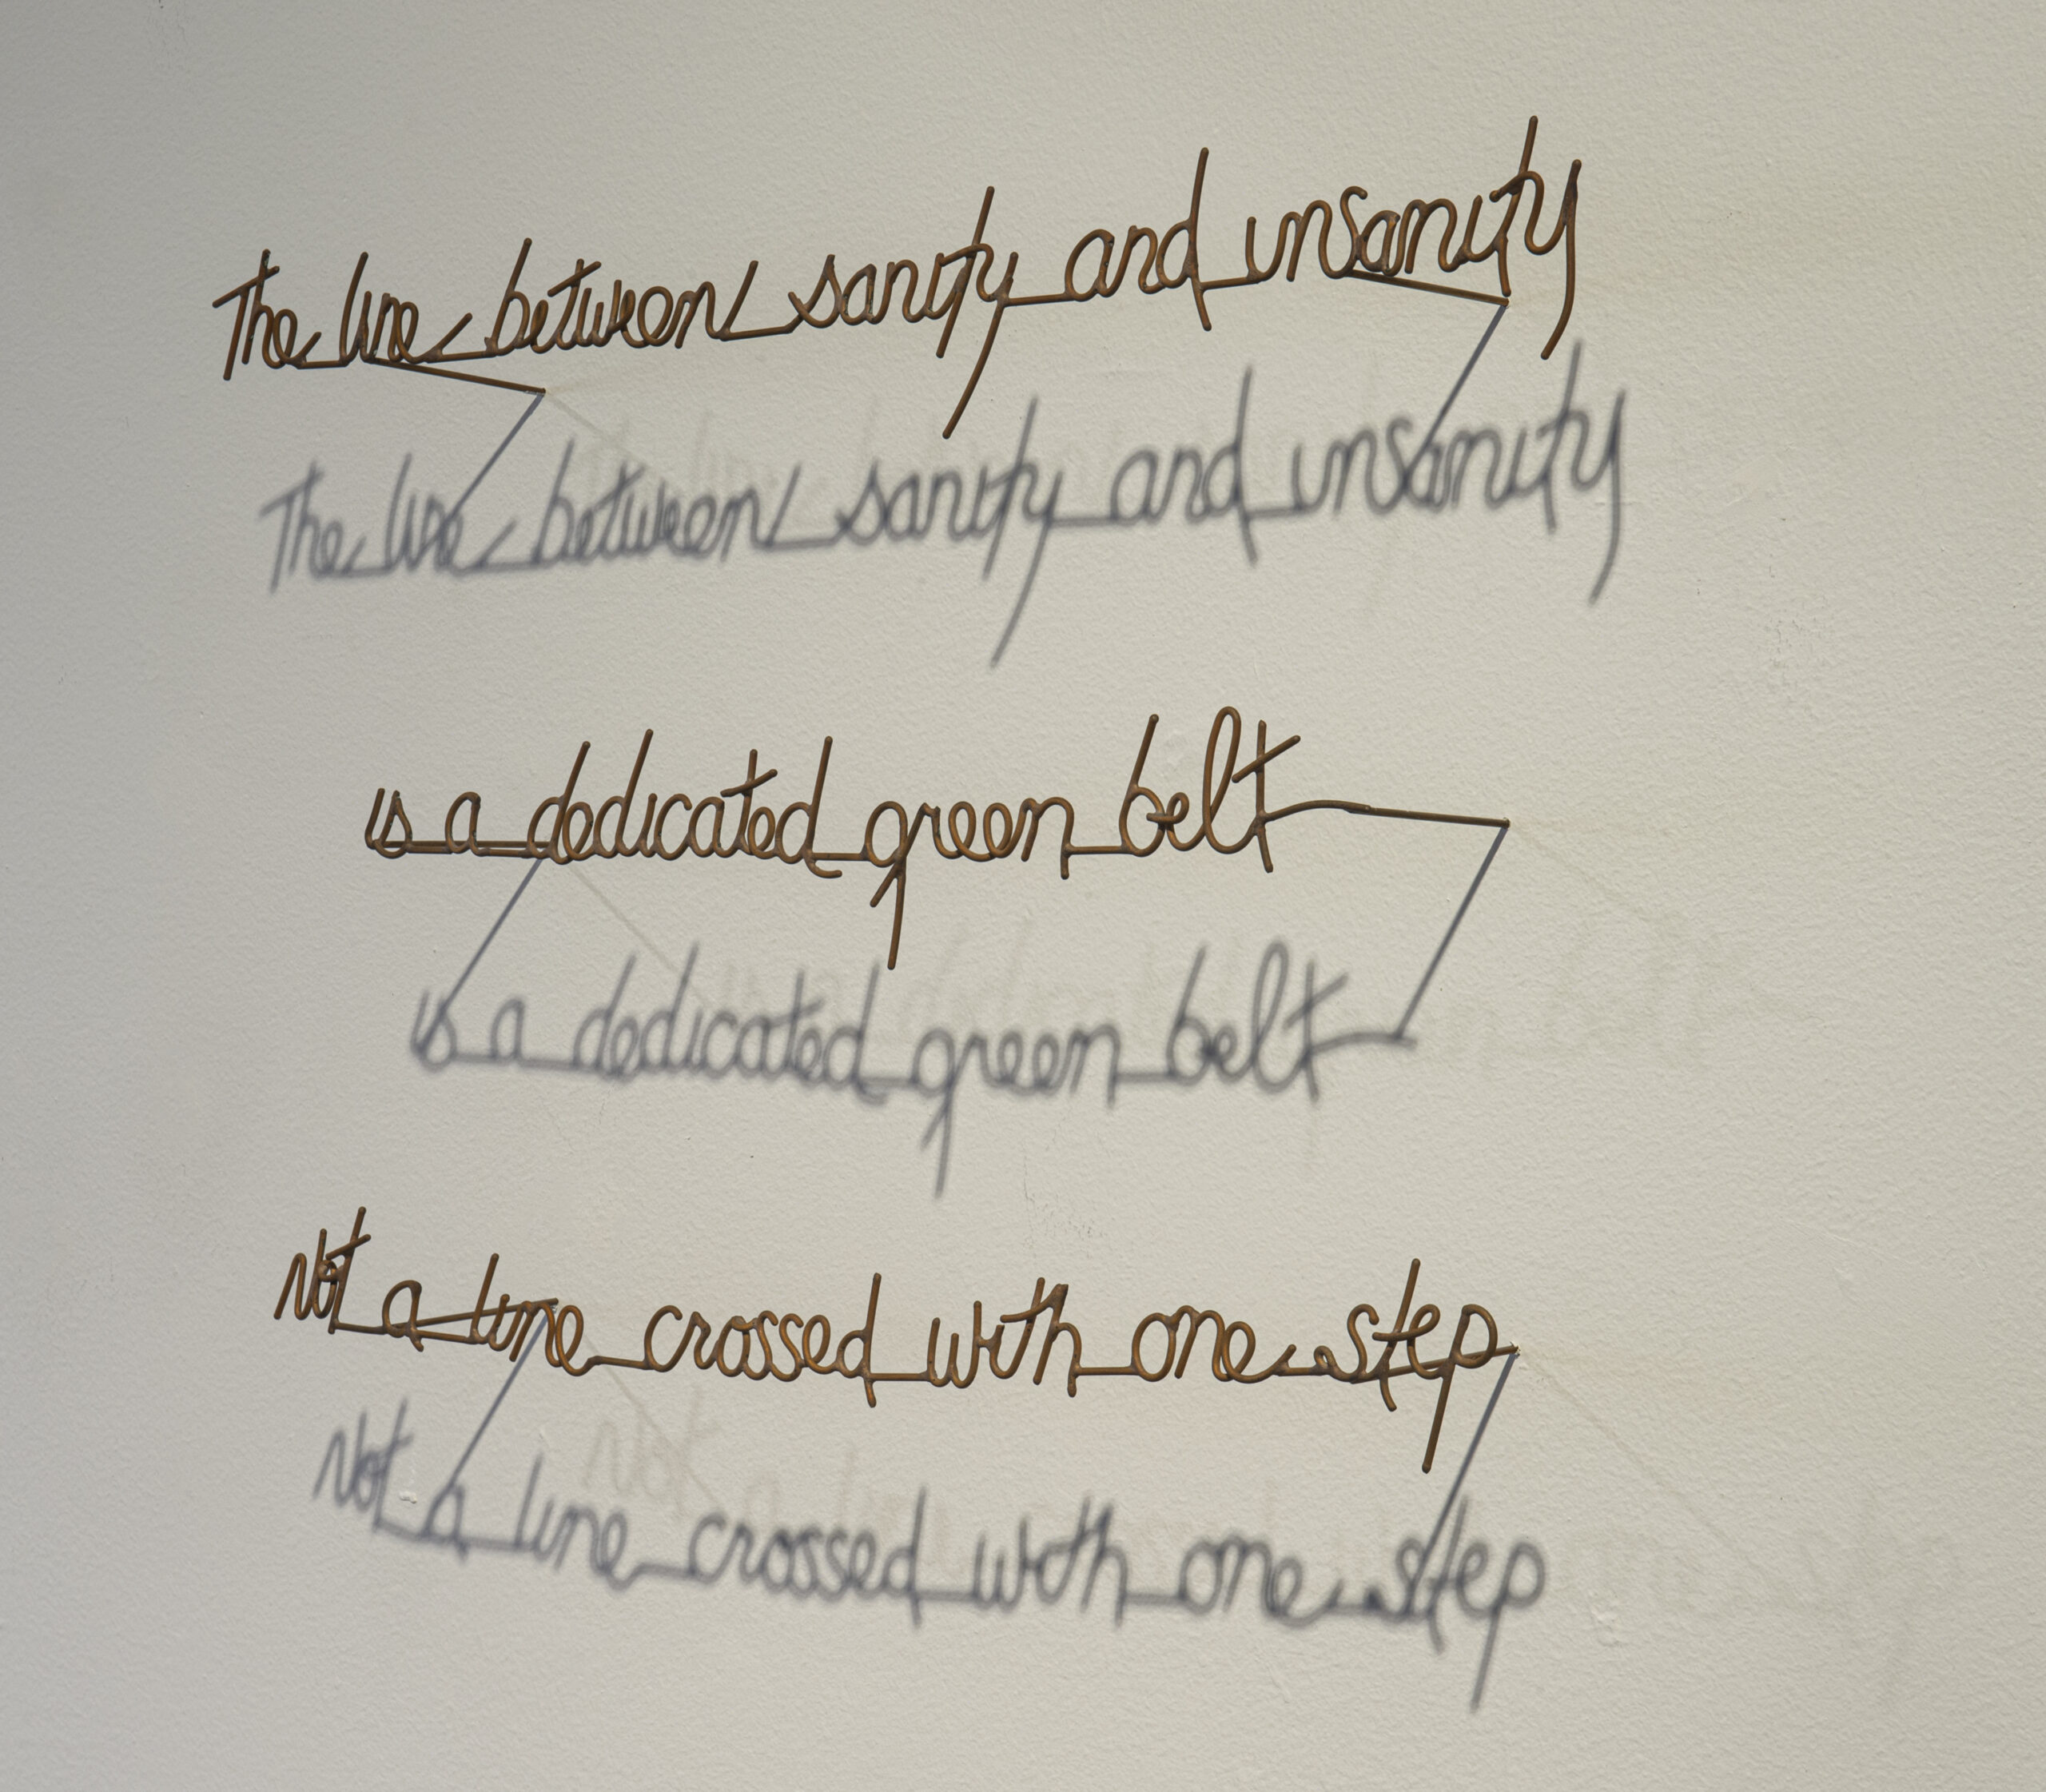 The line between sanity and insanity
is a dedicated green belt
Not a line crossed with one step